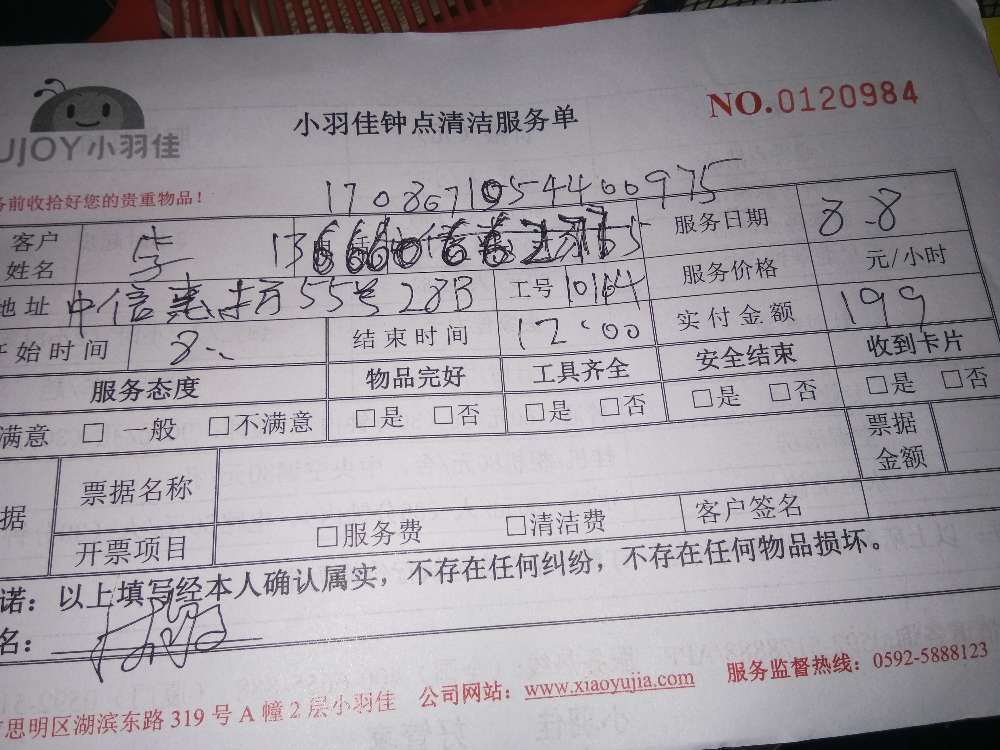 UJOY小羽佳
小羽佳钟点清洁服务单
NO.0120984
务前收拾好您的贵重物品！
17086710554400975
客户姓名 李 服务日期 8.8
地址 中信惠扬55号28B 工号 10164 服务价格 元/小时
开始时间 8 结束时间 12:00 实付金额 199
服务态度 物品完好 工具齐全 安全结束 收到卡片
满意 □ 一般 □不满意 □是 □否 □是 □否 □是 □否 □是 □否
据 票据名称 票据金额
开票项目 □服务费 □清洁费 客户签名
诺：以上填写经本人确认属实，不存在任何纠纷，不存在任何物品损坏。
名：
思明区湖滨东路319号A幢2层小羽佳 公司网站：www.xiaoyujia.com 服务监督热线：0592-5888123